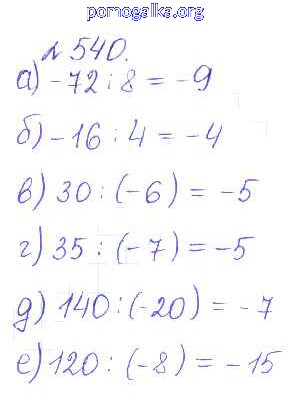 pomogalka.org
№ 540.
а) -72 : 8 = -9
б) -16 : 4 = -4
в) 30 : (-6) = -5
г) 35 : (-7) = -5
д) 140 : (-20) = -7
е) 120 : (-8) = -15